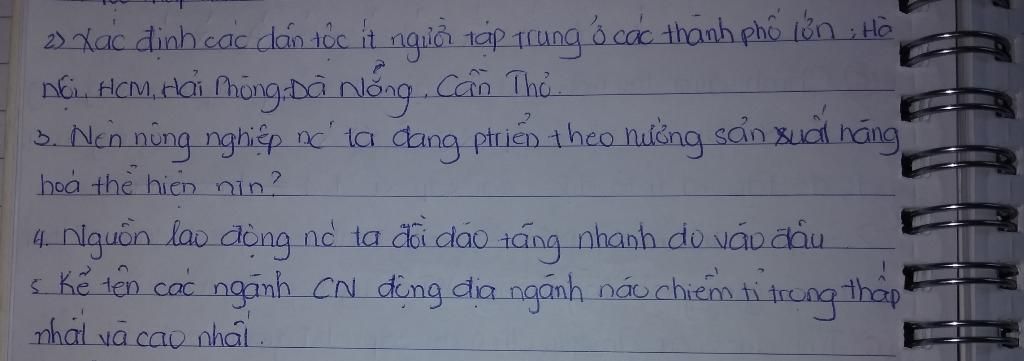 2) Xác định các dân tộc ít người tập trung ở các thành phố lớn: Hà
Nội, HCM, Hải Phòng, Đà Nẵng, Cần Thơ.
3. Nền nông nghiệp nc' ta đang ptriển theo hướng sản xuất hàng
hoá thể hiện ntn?
4. Nguồn lao động nc' ta dồi dào tăng nhanh do vào đâu
5. Kể tên các ngành CN động địa ngành nào chiếm tỉ trọng thấp
nhất và cao nhất.